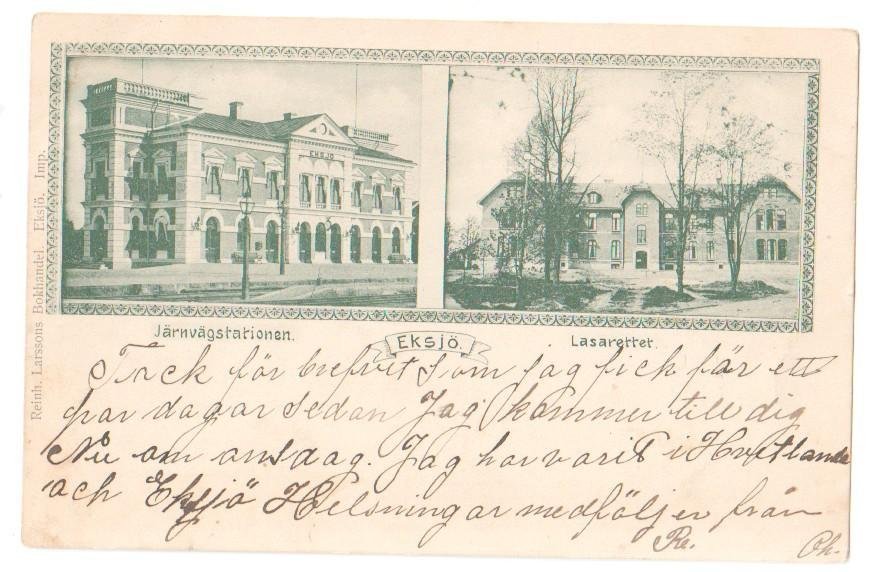 EKSJÖ
Reinh. Larssons Bokhandel. Eksjö. Imp.
Järnvägstationen.
Eksjö.
Lasarettet.
Tack för brefvet som jag fick för ett
par dagar sedan Jag kommer till dig
Nu om onsdag. Jag har varit i Hvetlanda
och Eksjö Helsningar medföljer från
Re. Oh.